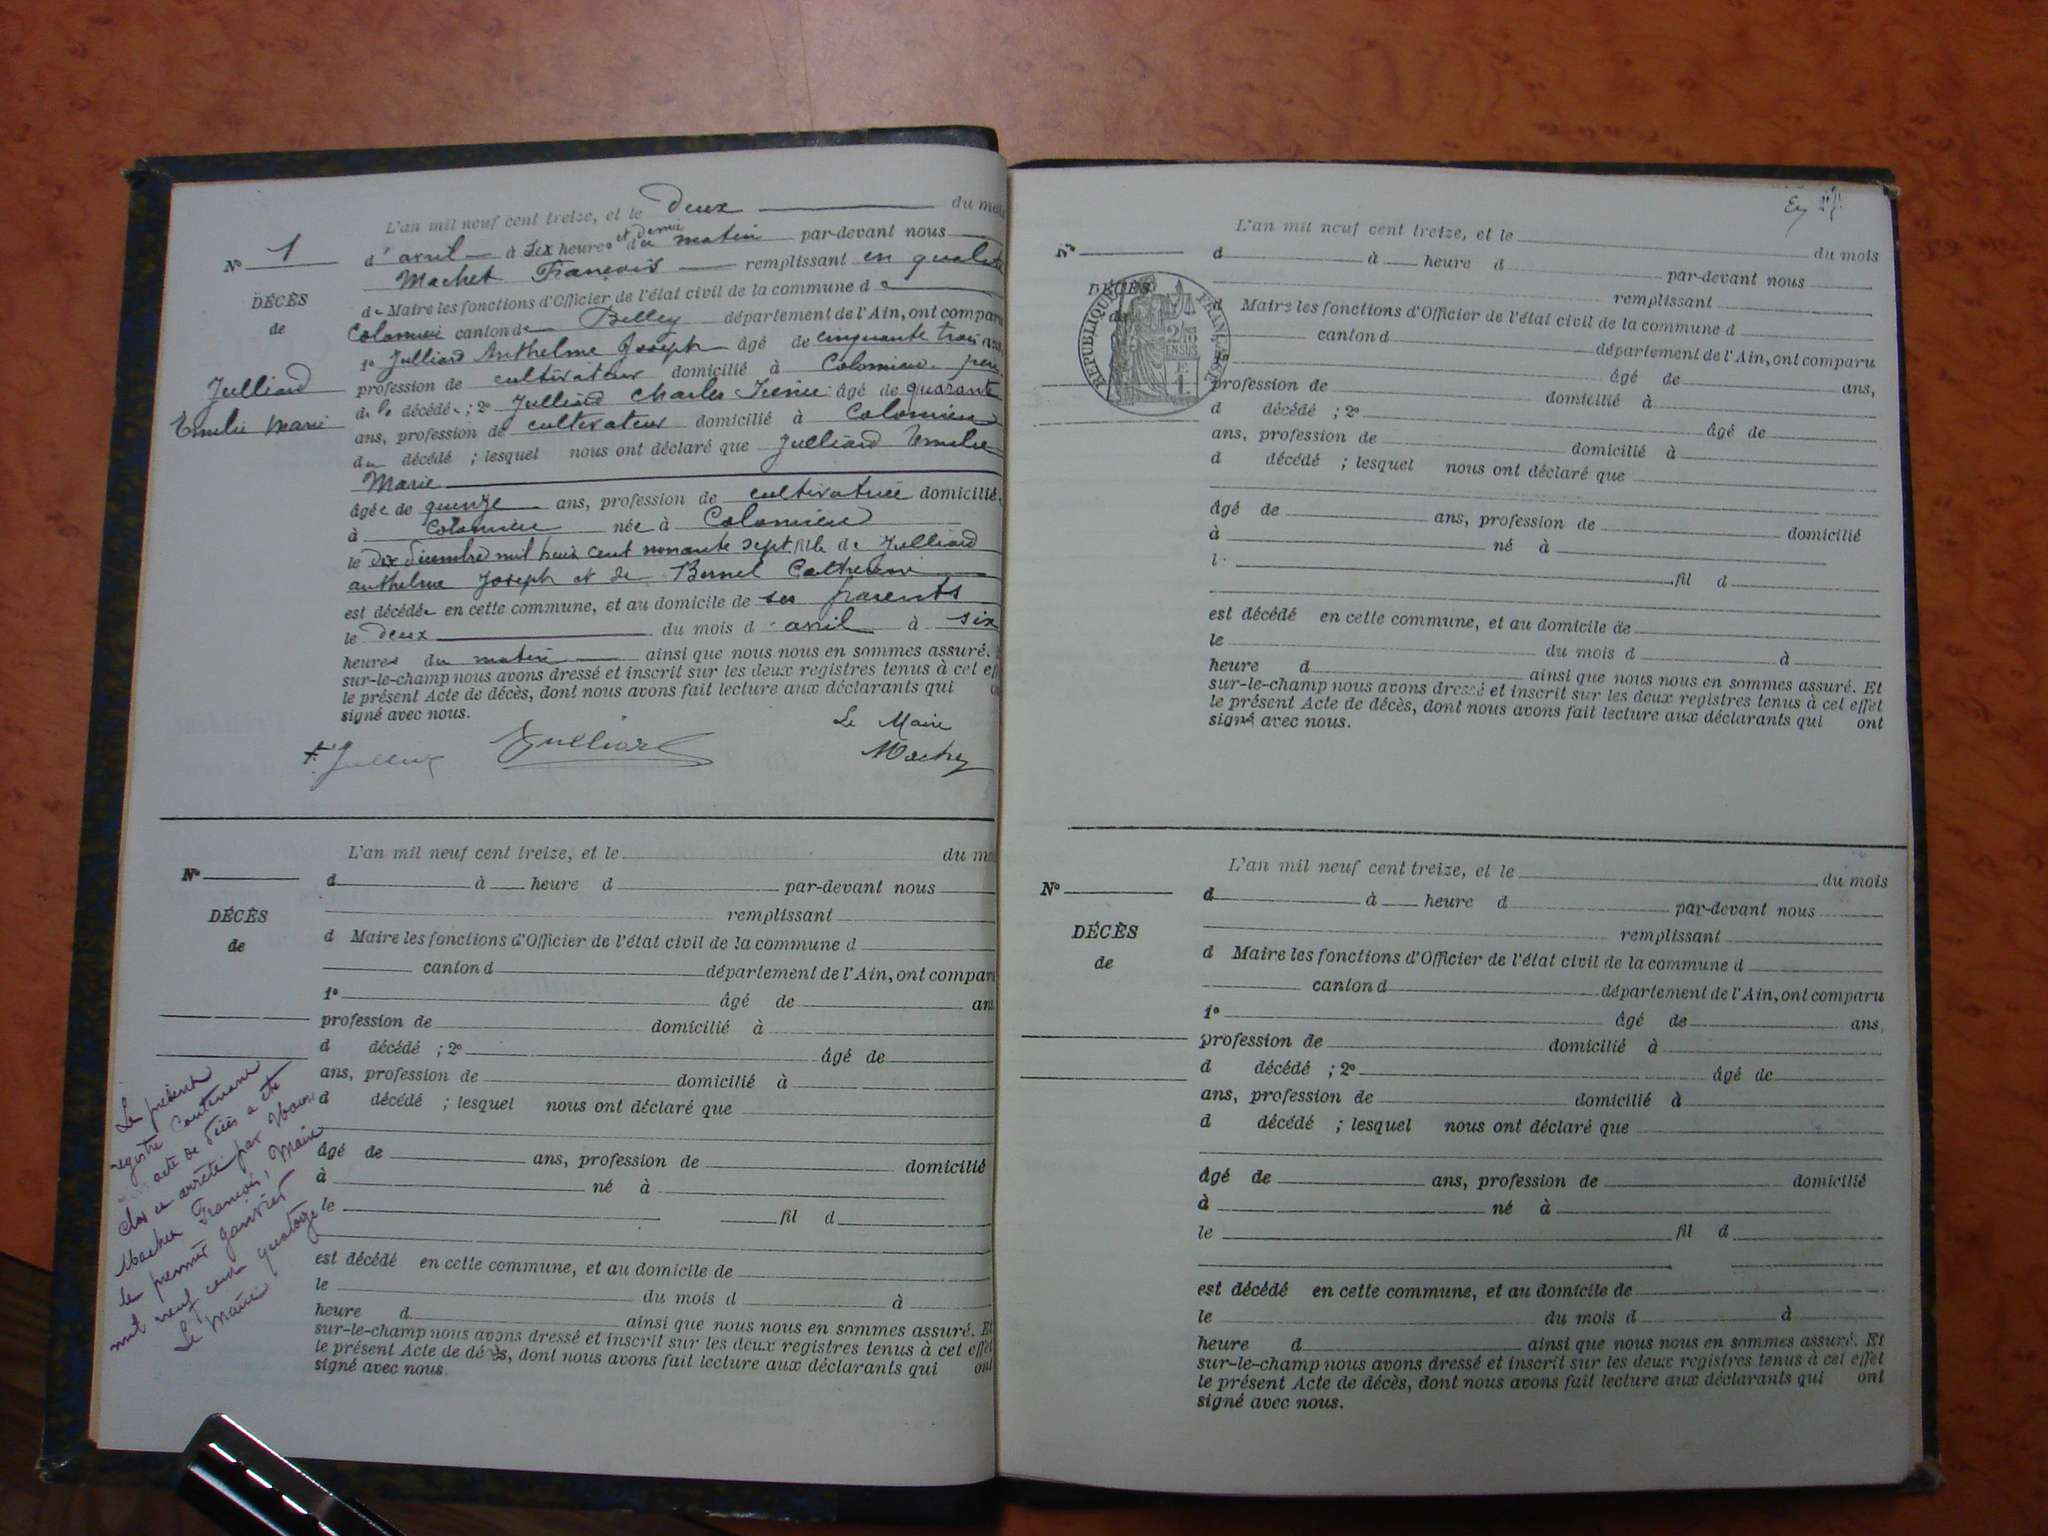 L'an mil neuf cent treize, et le deux du mois
N° 1
d'avril à six heures et demie du matin par-devant nous
Machet François remplissant en qualité
DÉCÈS
de
Julliard
Emilie Marie
de Maire les fonctions d'Officier de l'état civil de la commune de
Colomieu canton de Belley département de l'Ain, ont comparu
1° Julliard Anthelme Joseph âgé de cinquante trois ans,
profession de cultivateur domicilié à Colomieu père
de la décédée ; 2° Julliard Charles âgé de quarante
ans, profession de cultivateur domicilié à Colomieu
du décédé ; lesquel nous ont déclaré que Julliard Emilie
Marie
âgée de quinze ans, profession de cultivatrice domicilié
à Colomieu née à Colomieu
le dix décembre mil huit cent nonante sept fille de Julliard
anthelme Joseph et de Catherine
est décédée en cette commune, et au domicile de ses parents
le deux du mois d'avril à six
heures du matin ainsi que nous nous en sommes assuré.
sur-le-champ nous avons dressé et inscrit sur les deux registres tenus à cet eff
le présent Acte de décès, dont nous avons fait lecture aux déclarants qui
signé avec nous.
Le Maire
Julliard Machet
L'an mil neuf cent treize, et le du mo
N°
d à heure d par-devant nous
remplissant
DÉCÈS
de
d Maire les fonctions d'Officier de l'état civil de la commune d
canton d département de l'Ain, ont comparu
1° âgé de ans
profession de domicilié à
d décédé ; 2° âgé de
ans, profession de domicilié à
d décédé ; lesquel nous ont déclaré que
âgé de ans, profession de domicilié
à né à
le fil d
est décédé en cette commune, et au domicile de
le du mois d à
heure d ainsi que nous nous en sommes assuré. Et
sur-le-champ nous avons dressé et inscrit sur les deux registres tenus à cet effet
le présent Acte de décès, dont nous avons fait lecture aux déclarants qui ont
signé avec nous.
Le présent
registre Contenant
acte de décès a été
clos et arrêté par Nous,
Machet François, Maire
le premier Janvier
mil neuf cent quatorze
Le Maire
L'an mil neuf cent treize, et le du mois
N°
d à heure d par-devant nous
remplissant
DÉCÈS
de
RÉPUBLIQUE FRANÇAISE
2/10
EN SUS
d Maire les fonctions d'Officier de l'état civil de la commune d
canton d département de l'Ain, ont comparu
âgé de ans,
profession de domicilié à
d décédé ; 2° âgé de
ans, profession de domicilié à
d décédé ; lesquel nous ont déclaré que
âgé de ans, profession de domicilié
à né à
l fil d
est décédé en cette commune, et au domicile de
le du mois d à
heure d ainsi que nous nous en sommes assuré. Et
sur-le-champ nous avons dressé et inscrit sur les deux registres tenus à cet effet
le présent Acte de décès, dont nous avons fait lecture aux déclarants qui ont
signé avec nous.
L'an mil neuf cent treize, et le du mois
N°
d à heure d par-devant nous
remplissant
DÉCÈS
de
d Maire les fonctions d'Officier de l'état civil de la commune d
canton d département de l'Ain, ont comparu
1° âgé de ans,
profession de domicilié à
d décédé ; 2° âgé de
ans, profession de domicilié à
d décédé ; lesquel nous ont déclaré que
âgé de ans, profession de domicilié
à né à
le fil d
est décédé en cette commune, et au domicile de
le du mois d à
heure d ainsi que nous nous en sommes assuré. Et
sur-le-champ nous avons dressé et inscrit sur les deux registres tenus à cet effet
le présent Acte de décès, dont nous avons fait lecture aux déclarants qui ont
signé avec nous.